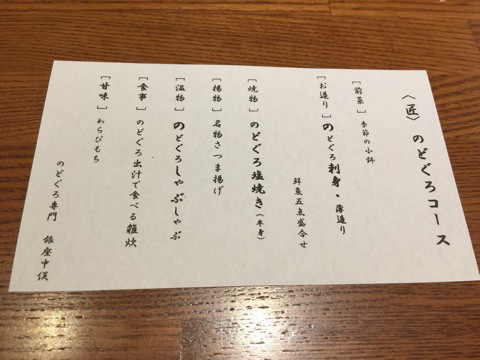 〈匠〉のどぐろコース
［前菜］季節の小鉢
［お造り］のどぐろ刺身・薄造り
鮮魚五点盛合せ
［焼物］のどぐろ塩焼き（半身）
［揚物］名物さつま揚げ
［温物］のどぐろしゃぶしゃぶ
［食事］のどぐろ出汁で食べる雑炊
［甘味］わらびもち
のどぐろ専門 銀座中俣